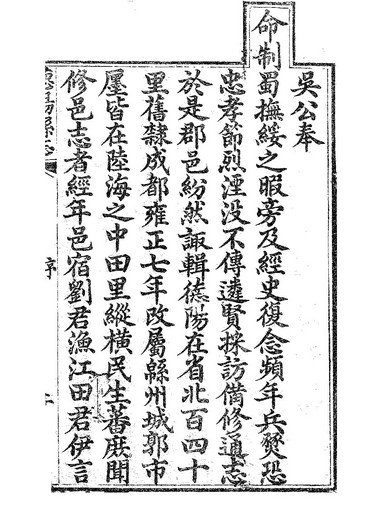 吳公奉
命制蜀撫綏之暇旁及經史復念頻年兵燹恐
忠孝節烈湮没不傳遴賢採訪備修通志
於是郡邑紛然諏輯德陽在省北百四十
里舊隸成都雍正七年改屬緜州城郭市
廛皆在陸海之中田里縱橫民生蕃庶聞
修邑志者經年邑宿劉君漁江田君伊言
序